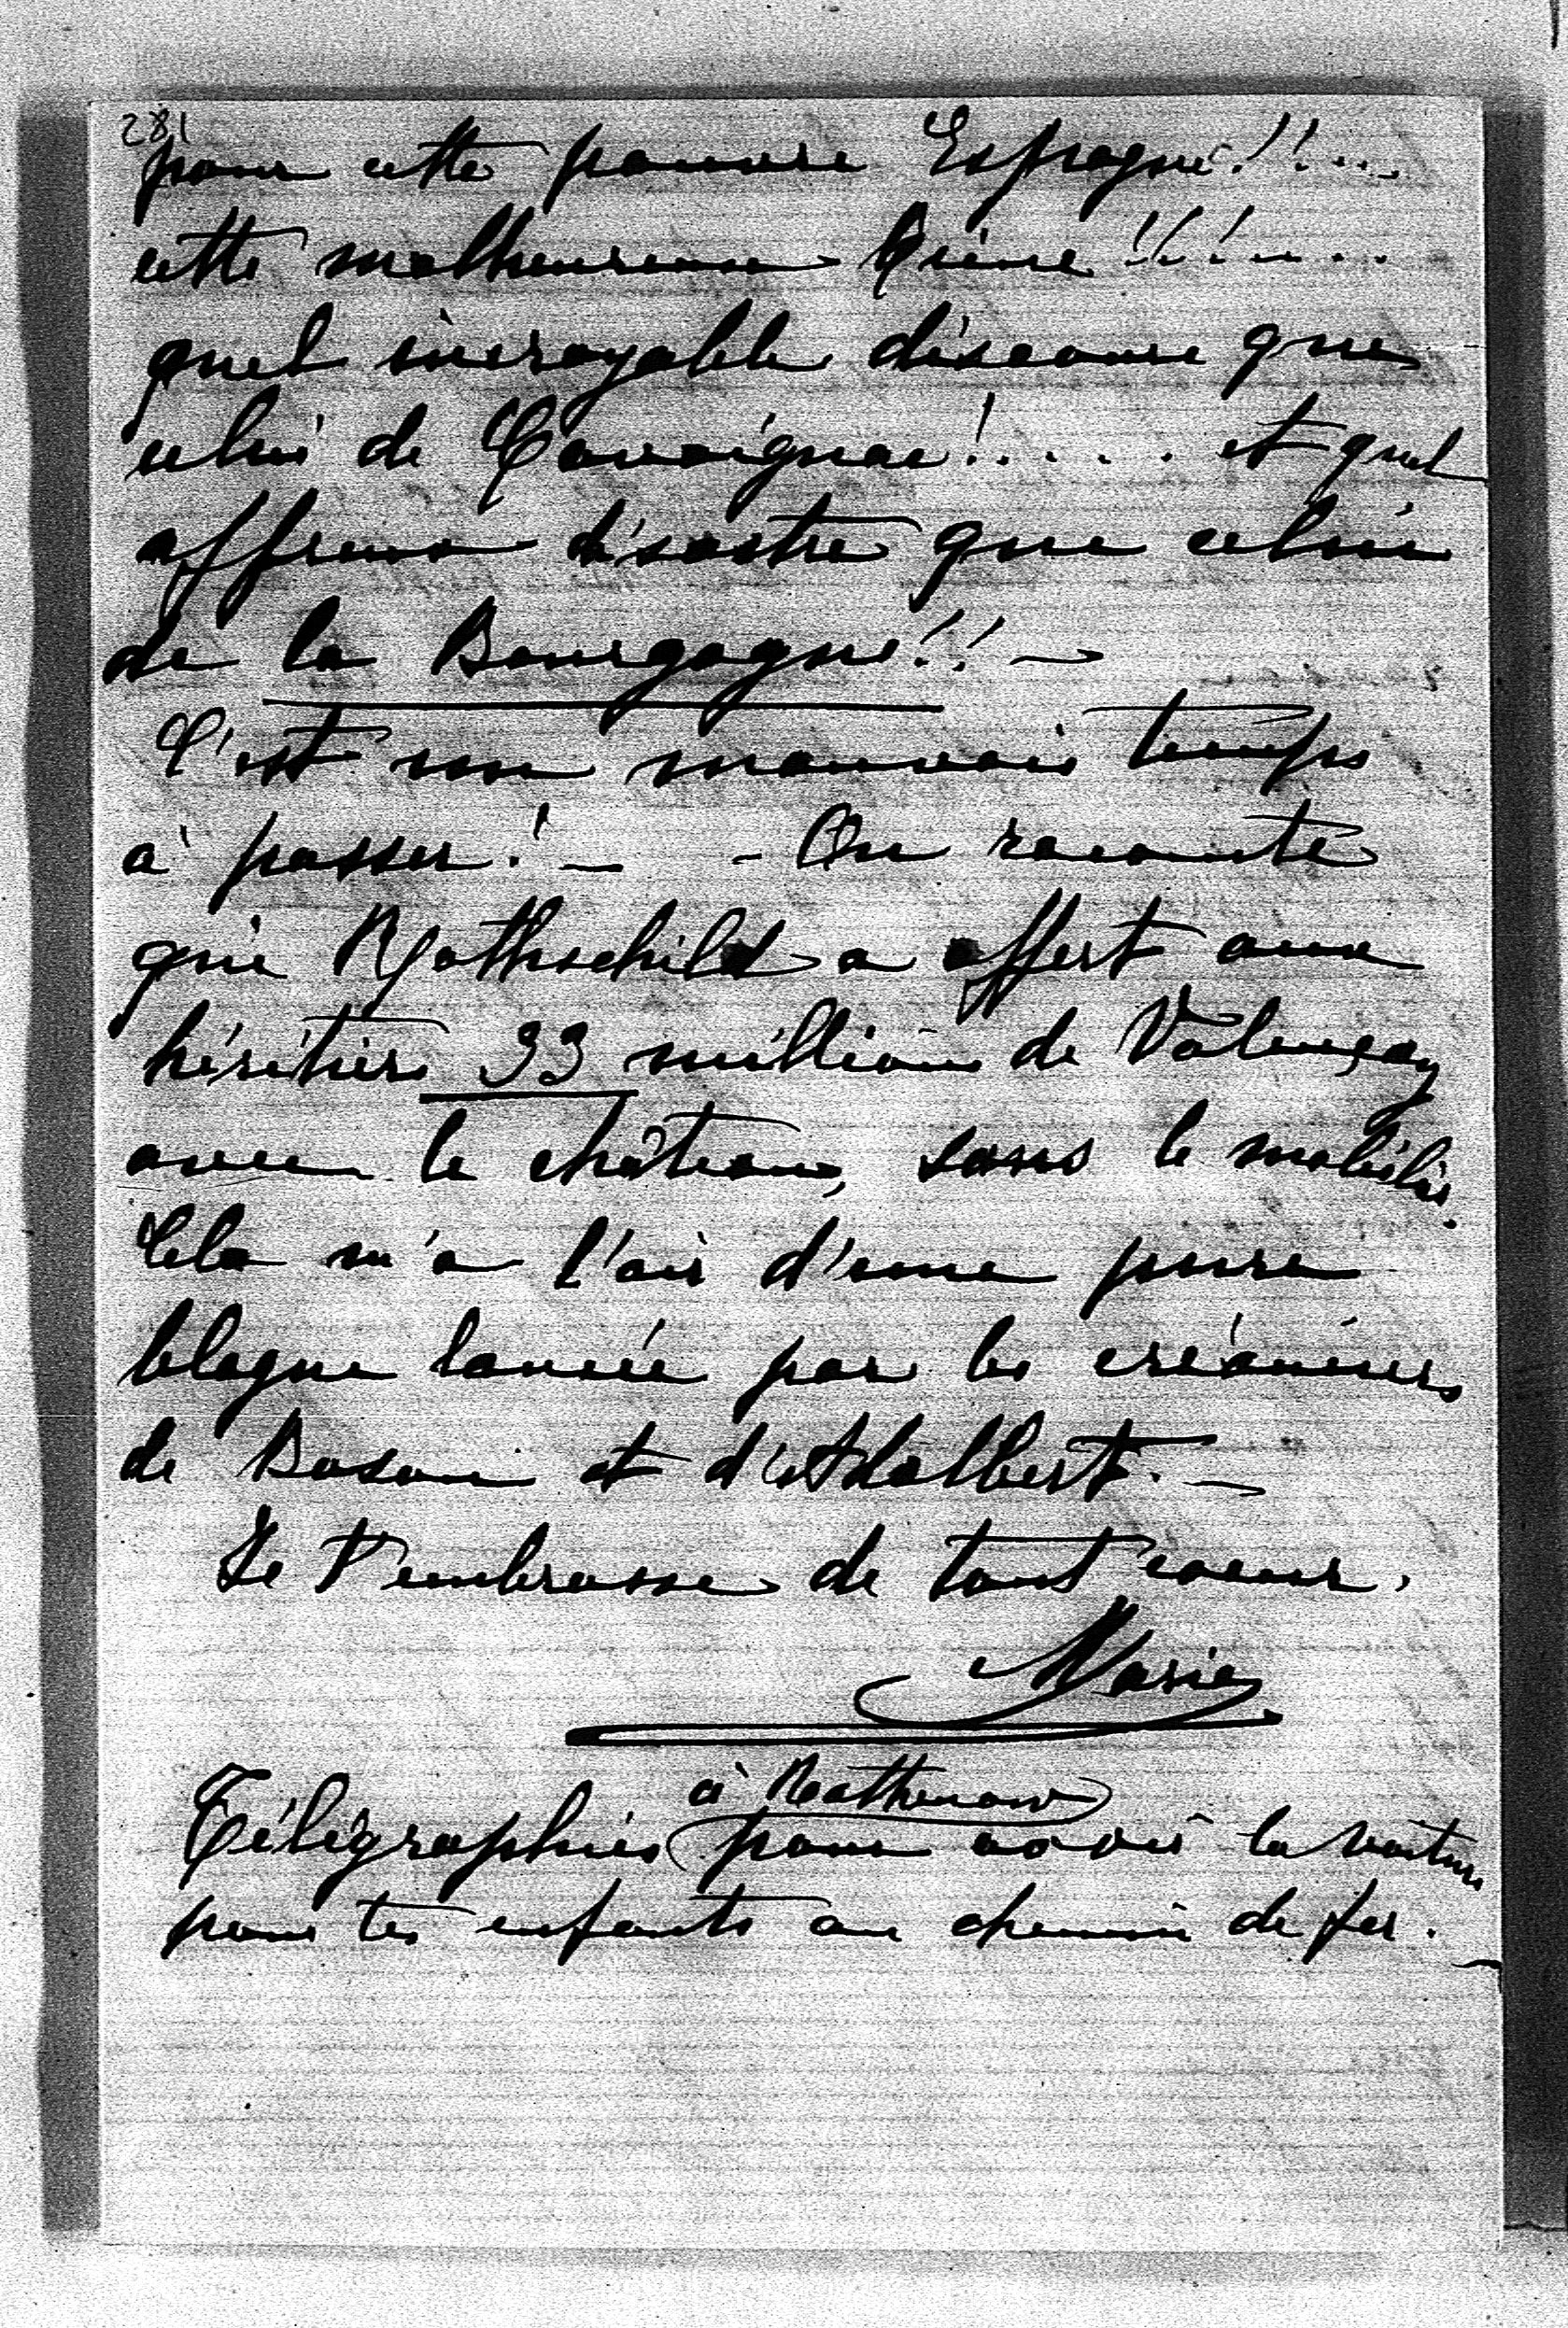 281
pour cette pauvre Espagne!!...
cette malheureuse Reine!!!...
quel incroyable discours que
celui de Cavaignac!.... et quel
affreux désastre que celui
de la Bourgogne!! —
C'est un mauvais temps
à passer! — - On raconte
que Rothschild a offert aux
héritiers 33 millions de Valençay
avec le château, sans le mobilier.
Cela m'a l'air d'une pure
blague lancée par les créanciers
de Boson et d'Adalbert. —
Je t'embrasse de tout coeur.
Marie
à Rathenow
Télégraphies pour avoir la voiture
pour tes enfants au chemin de fer. —